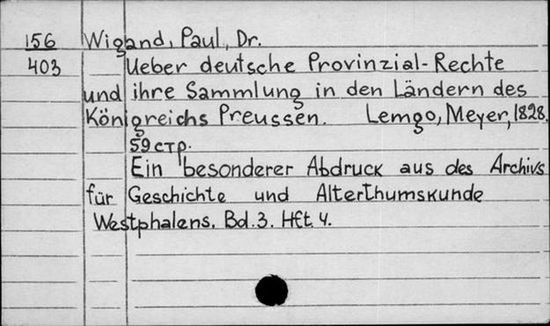 156 Wigand, Paul, Dr.
403 Ueber deutsche Provinzial-Rechte
und ihre Sammlung in den Ländern des
Königreichs Preussen. Lemgo, Meyer, 1828.
59 стр.
Ein besonderer Abdruck aus des Archivs
für Geschichte und Alterthumskunde
Westphalens. Bd. 3. Hft. 4.